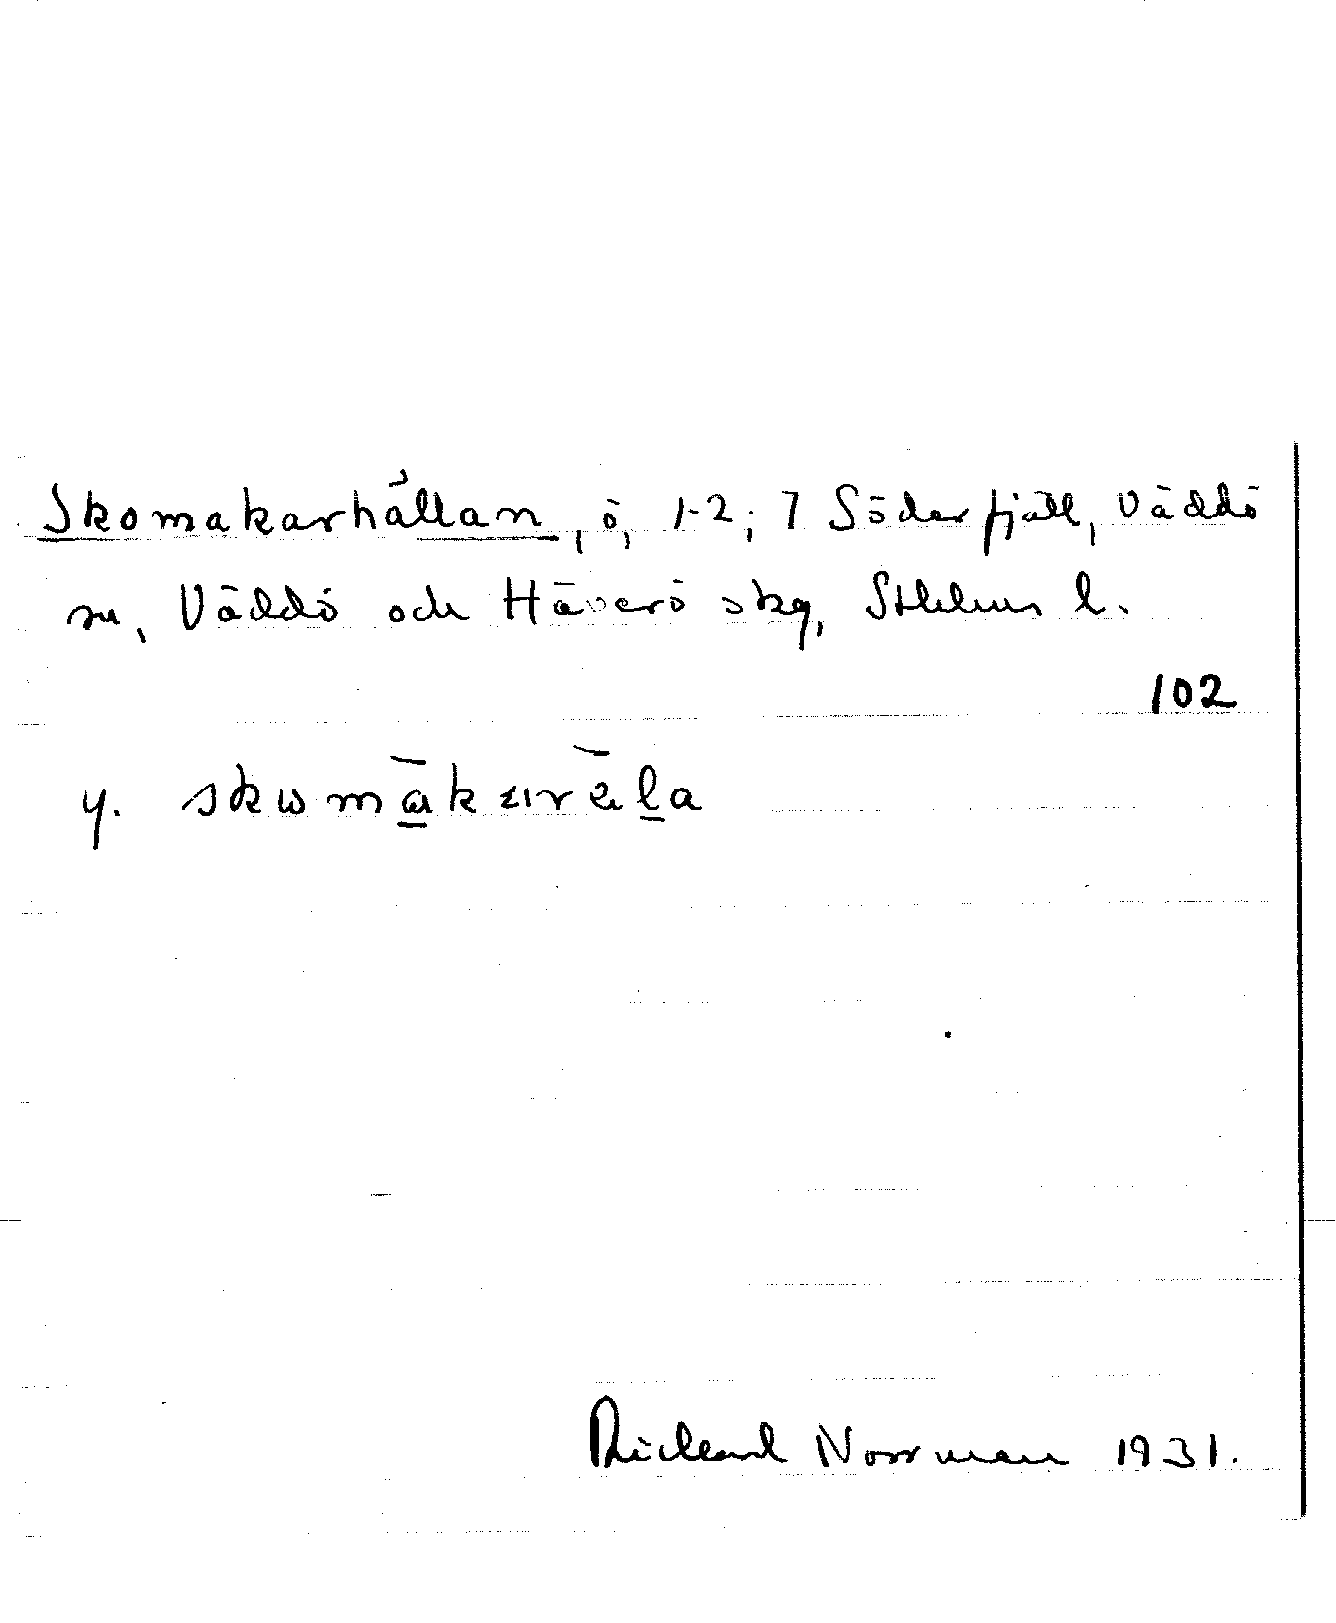 Skomakarhällan, ö, 1-2; 7 Söderfjäll, Väddö
sn, Väddö och Häverö skg, Sthlms l.
102
y.
Richard Norrman 1931.